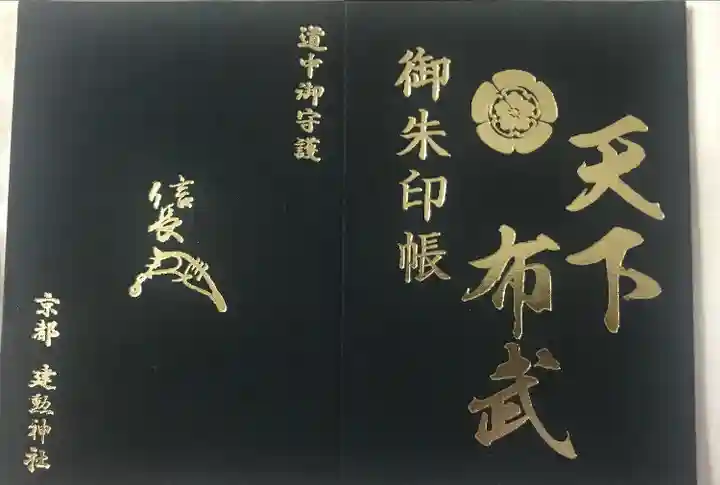 天下
布武
御朱印帳
道中御守護
信長
京都 建勲神社